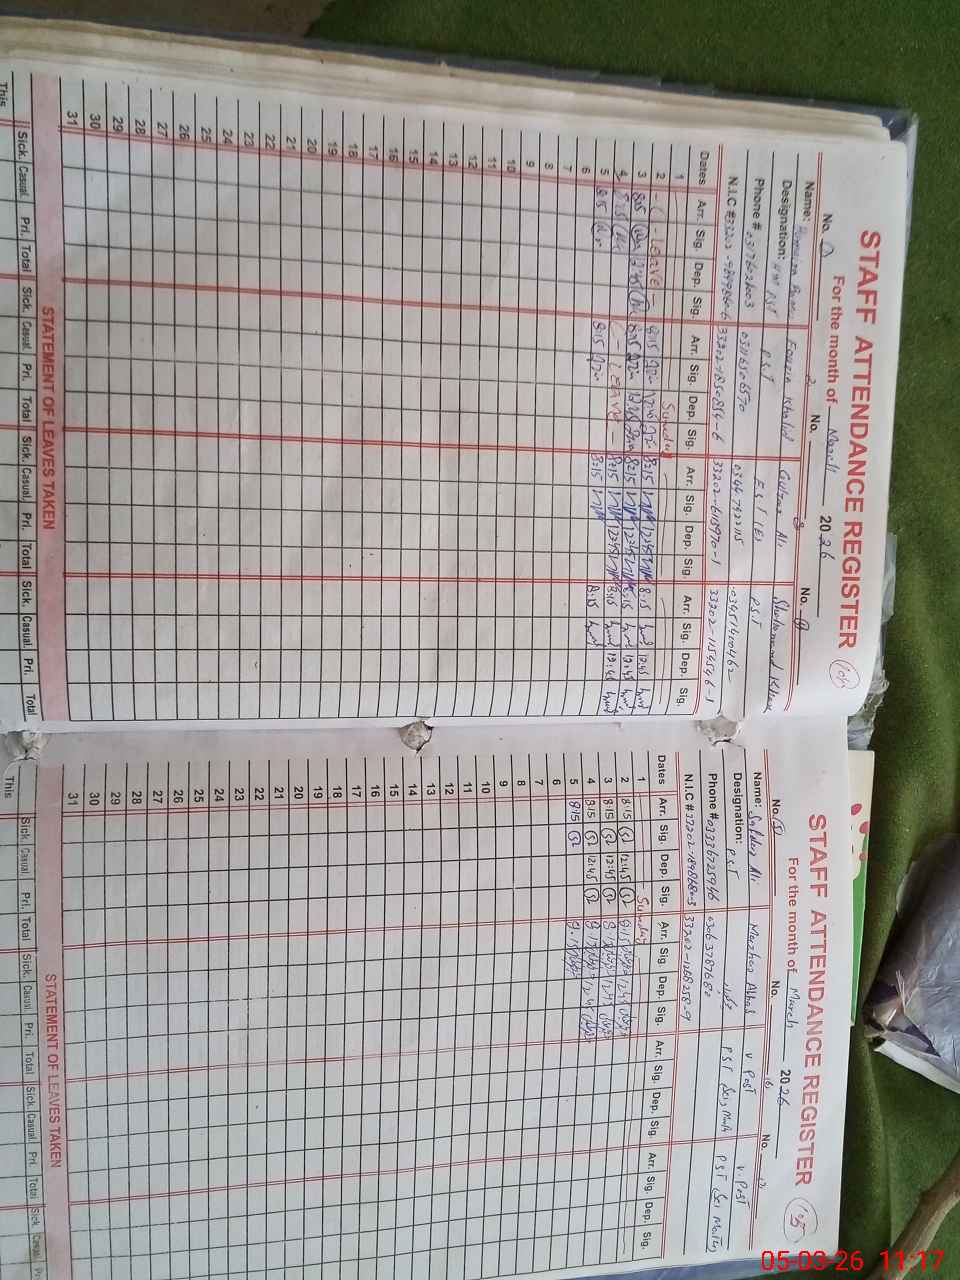 STAFF ATTENDANCE REGISTER
104
For the month of March 2026
No. 1 2 No. 3 No. 4
Name: Fouzia Khalid Gulzar Ali
Designation: HM PST P.S.T E.S.T (E) P.S.T
Phone # 03176026003 03116506570 03467922115 03451400462
N.I.C # 33202-1850854-6 33202-6115970-1 33202-1154546-1
Dates Arr. Sig. Dep. Sig. Arr. Sig. Dep. Sig. Arr. Sig. Dep. Sig. Arr. Sig. Dep. Sig.
1 Sunday
2 - Leave - 8:15 12:45 8:15 12:45 8:15 12:45
3 8:15 12:45 8:15 12:45 8:15 12:45 8:15 12:45
4 8:15 - LEAVE - 8:15 12:45 8:15 12:45
5 8:15 8:15 8:15 8:15
6
7
8
9
10
11
12
13
14
15
16
17
18
19
20
21
22
23
24
25
26
27
28
29
30
31
STATEMENT OF LEAVES TAKEN
Sick. Casual. Pri. Total Sick. Casual. Pri. Total Sick. Casual. Pri. Total Sick. Casual. Pri. Total
This
STAFF ATTENDANCE REGISTER
105
For the month of March 2026
No. 5 No. No.
Name: Safdar Ali Mazhar Abbas V. Post V. Post
Designation: P.S.T P.S.T Sci, Math P.S.T Sci
Phone # 03336725946 03063787680
N.I.C # 33202-1268258-9
Dates Arr. Sig. Dep. Sig. Arr. Sig. Dep. Sig. Arr. Sig. Dep. Sig. Arr. Sig. Dep. Sig.
1 Sunday
2 8:15 12:45 8:15 12:45
3 8:15 12:45 8:15 12:45
4 8:15 12:45 8:15 12:45
5 8:15 8:15
6
7
8
9
10
11
12
13
14
15
16
17
18
19
20
21
22
23
24
25
26
27
28
29
30
31
STATEMENT OF LEAVES TAKEN
Sick Casual. Pri. Total Sick. Casual. Pri. Total Sick. Casual. Pri. Total Sick. Casual.
This
05-03-26 11:17